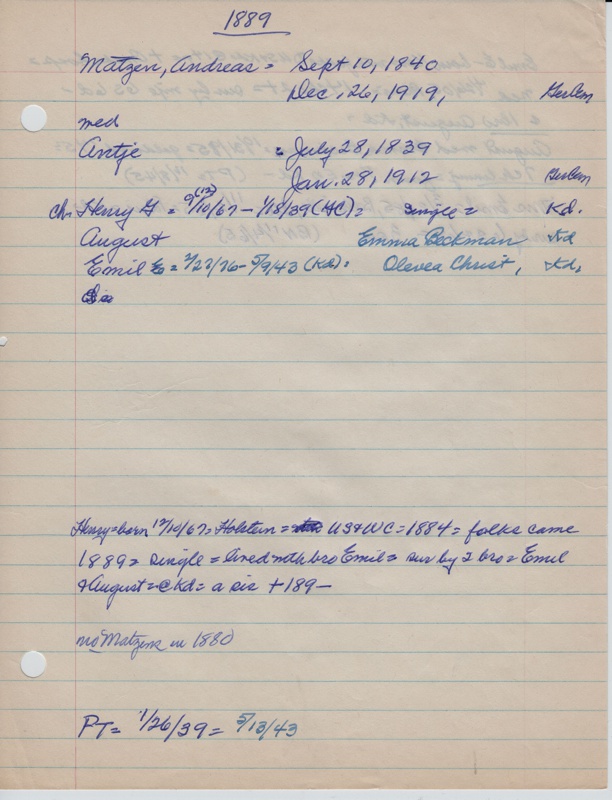 1889
Matzen, Andreas = Sept 10, 1840
Dec. 26, 1919,
med
Antje = July 28, 1839
Jan. 28, 1912
ch. Henry G = 9(12)/10/67 - 1/18/39 (HC) = single = Kd.
August Emma Beckman Kd
Emil = 2/22/76 - 5/9/43 (Kd) = Olevea Christ, Kd,
Sis
Henry = born 12/10/67 = Holstein = US & WC = 1884 = folks came
1889 = single = lived with bro Emil = sur by 2 bro = Emil
& August = @ Kd = a sis + 189-
no Matzens in 1880
PT = 1/26/39 = 5/13/43